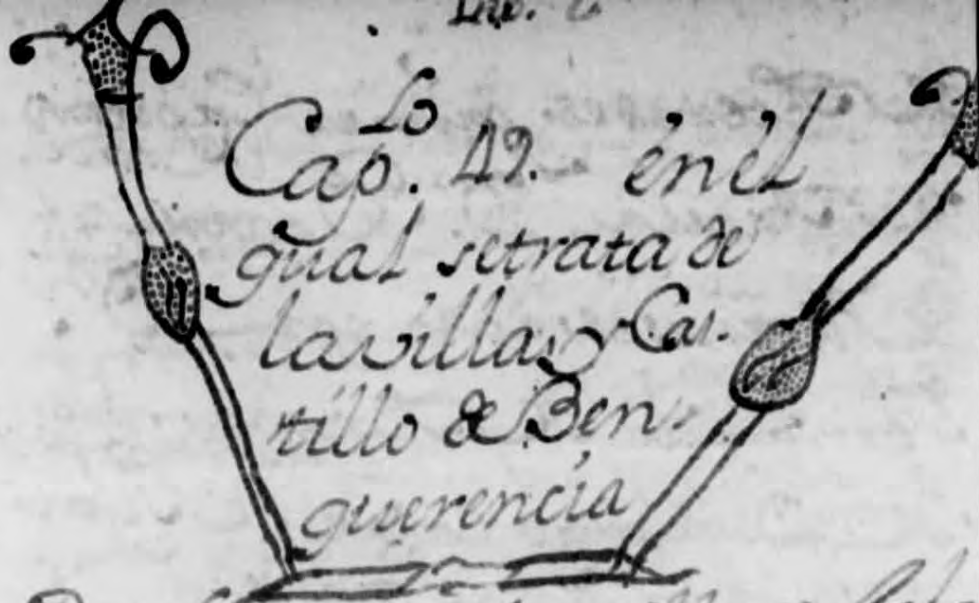 Cap.lo 42. én él
qual setrata de
lavilla y Cas-
tillo de Ben-
querencia